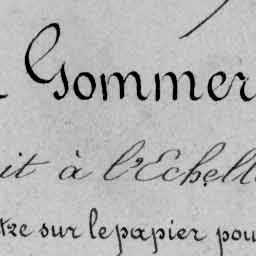 Gommer
it à l'Echell
tre sur le papier pou